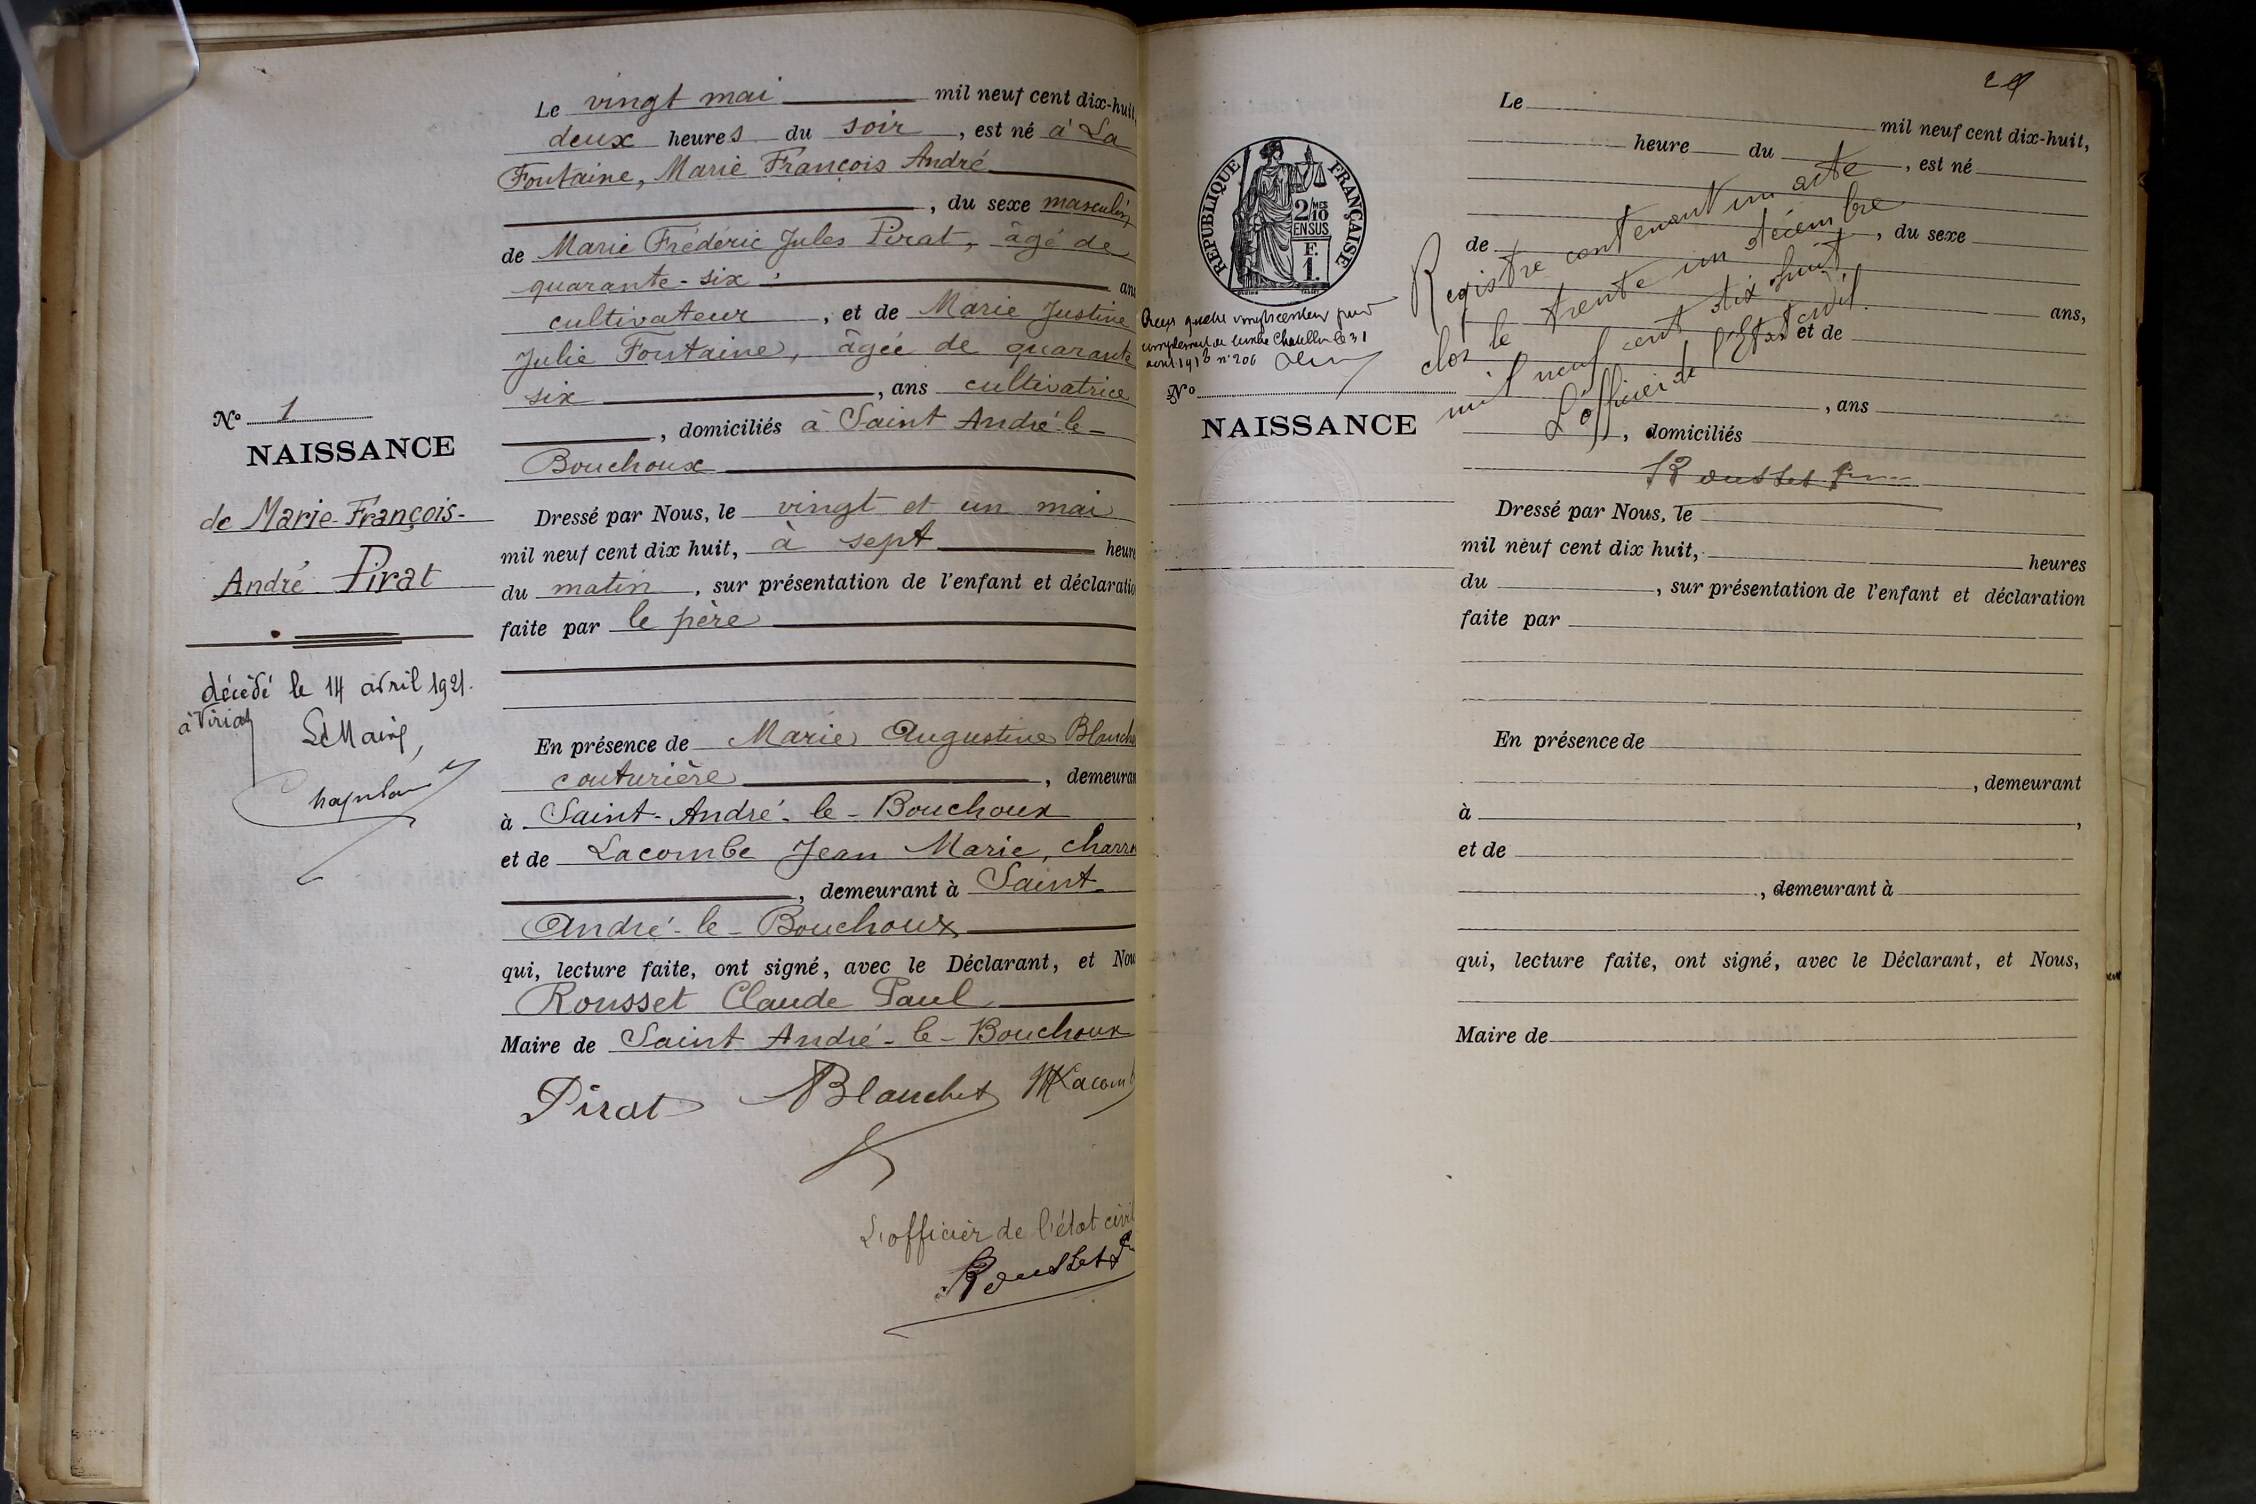 Le vingt mai mil neuf cent dix-huit,
deux heures du soir, est né à La
Fontaine, Marie François André
, du sexe masculin,
de Marie Frédéric Jules Pirat, âgé de
quarante-six ans
cultivateur, et de Marie Justine
Julie Fontaine, âgée de quarante
six, ans cultivatrice
, domiciliés à Saint André-le-
Bouchoux
Nº 1
NAISSANCE
de Marie-François-
André Pirat
décédé le 14 avril 1921.
à Viriat
Le Maire,
Dressé par Nous, le vingt et un mai
mil neuf cent dix huit, à sept heure
du matin, sur présentation de l'enfant et déclaratio
faite par le père
En présence de Marie Augustine Blanche
couturière, demeuran
à Saint-André-le-Bouchoux
et de Lacombe Jean Marie, charr
, demeurant à Saint-
André-le-Bouchoux
qui, lecture faite, ont signé, avec le Déclarant, et Nou
Rousset Claude Paul
Maire de Saint André-le-Bouchoux
Pirat Blanchet Lacomb
L'officier de l'état civil
Rousset
RÉPUBLIQUE FRANÇAISE
2/MES
10
EN SUS
F.
1.
31
avril 1918 nº 206
Nº
NAISSANCE
Le mil neuf cent dix-huit,
heure du , est né
de , du sexe
ans,
et de
, ans
, domiciliés
Registre contenant un acte
clos le trente un décembre
mil neuf cent dix huit
L'officier de l'Etat civil.
Rousset
Dressé par Nous, le
mil neuf cent dix huit, heures
du , sur présentation de l'enfant et déclaration
faite par
En présence de
, demeurant
à ,
et de
, demeurant à
qui, lecture faite, ont signé, avec le Déclarant, et Nous,
Maire de